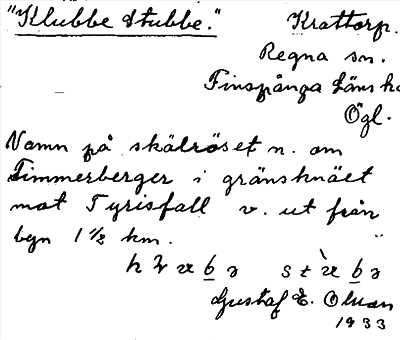 "Klubbe stubbe." Krattorp.
Regna sn.
Finspånga läns h
Ögl.
Namn på skälröset n. om
Timmerberget i gränsknäet
mot Tyrisfall v. ut från
byn 1 1/2 km.
Gustaf E. Olsson
1933